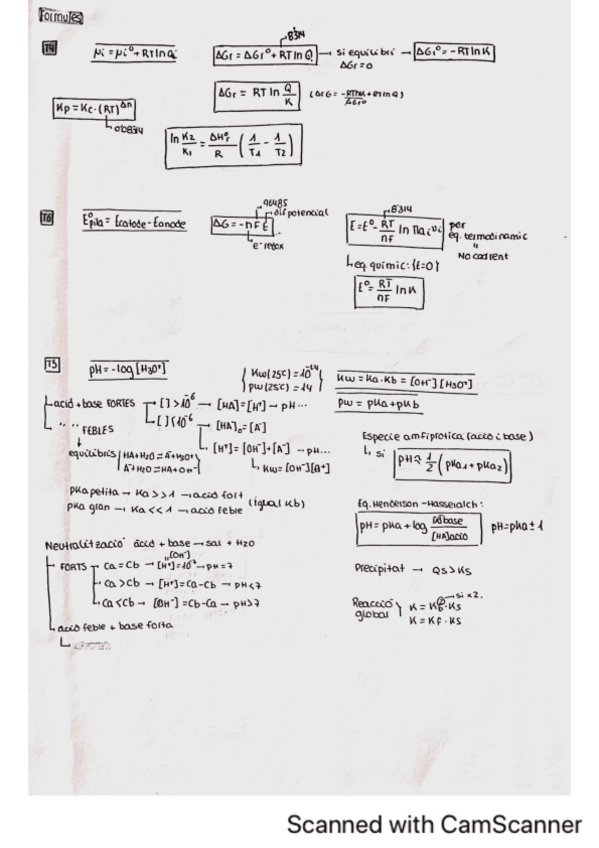 Formules
T4
μi = μi° + RT ln Qi
ΔGr = ΔGr° + RT ln Q → si equilibri → ΔGr° = -RT ln K
8'314
ΔGr = 0
ΔGr = RT ln Q/K
Kp = Kc · (RT)^Δn
0'08314
ln K2/K1 = ΔHr°/R (1/T1 - 1/T2)
T6
E°pila = Ecatode - Eanode
ΔG = -nFE
96485
dif potencial
e- redox
E = E° - RT/nF ln Πai^νi
8'314
per eq. termodinamic
No corrent
eq químic: {E=0}
E° = RT/nF ln K
T5
pH = -log[H3O+]
Kw(25°C) = 10^-14
pw(25°C) = 14
Kw = Ka · Kb = [OH-][H3O+]
pw = pKa + pKb
àcid + base FORTES → [ ] > 10^-6 → [HA] = [H+] → pH...
[ ] < 10^-6 → [HA]o = [A-]
[H+] = [OH-] + [A-] → pH...
Kw = [OH-][H+]
" " FEBLES
equilibris
HA + H2O ⇌ A- + H3O+
A- + H2O ⇌ HA + OH-
pKa petita → Ka >> 1 → acid fort
pKa gran → Ka << 1 → acid feble
(igual Kb)
Especie amfiprotica (acid i base)
si pH ≈ 1/2 (pKa1 + pKa2)
Eq. Henderson-Hasselalch:
pH = pKa + log [A-]base/[HA]acid
pH = pKa ± 1
Neutralització àcid + base → sal + H2O
FORTS
Ca = Cb → [H+] = [OH-] = 10^-7 → pH = 7
Ca > Cb → [H+] = Ca - Cb → pH < 7
Ca < Cb → [OH-] = Cb - Ca → pH > 7
acid feble + base forta
Precipitat → Qs > Ks
Reacció global
K = Kf² · Ks
si x2.
K = Kf · Ks
Scanned with CamScanner